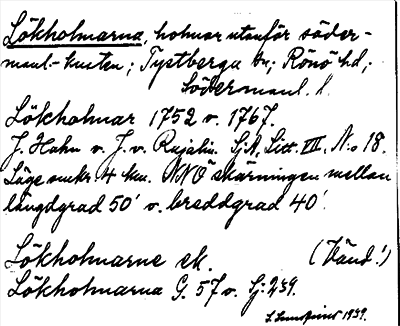 Lökholmarna, holmar utanför söder-
manl.-kusten; Tystberga sn; Rönö hd;
Södermanl. l.
Lökholmar 1752 o. 1767.
J. Hahn o. J. v. Rajalin. SjA, Litt. VII, No 18.
Läge omkr. 4 km. NNÖ skärningen mellan
längdgrad 50' o. breddgrad 40'.
Lökholmarne ek. (Vänd!)
Lökholmarna G. 57 o. Sj: 239.
1939.